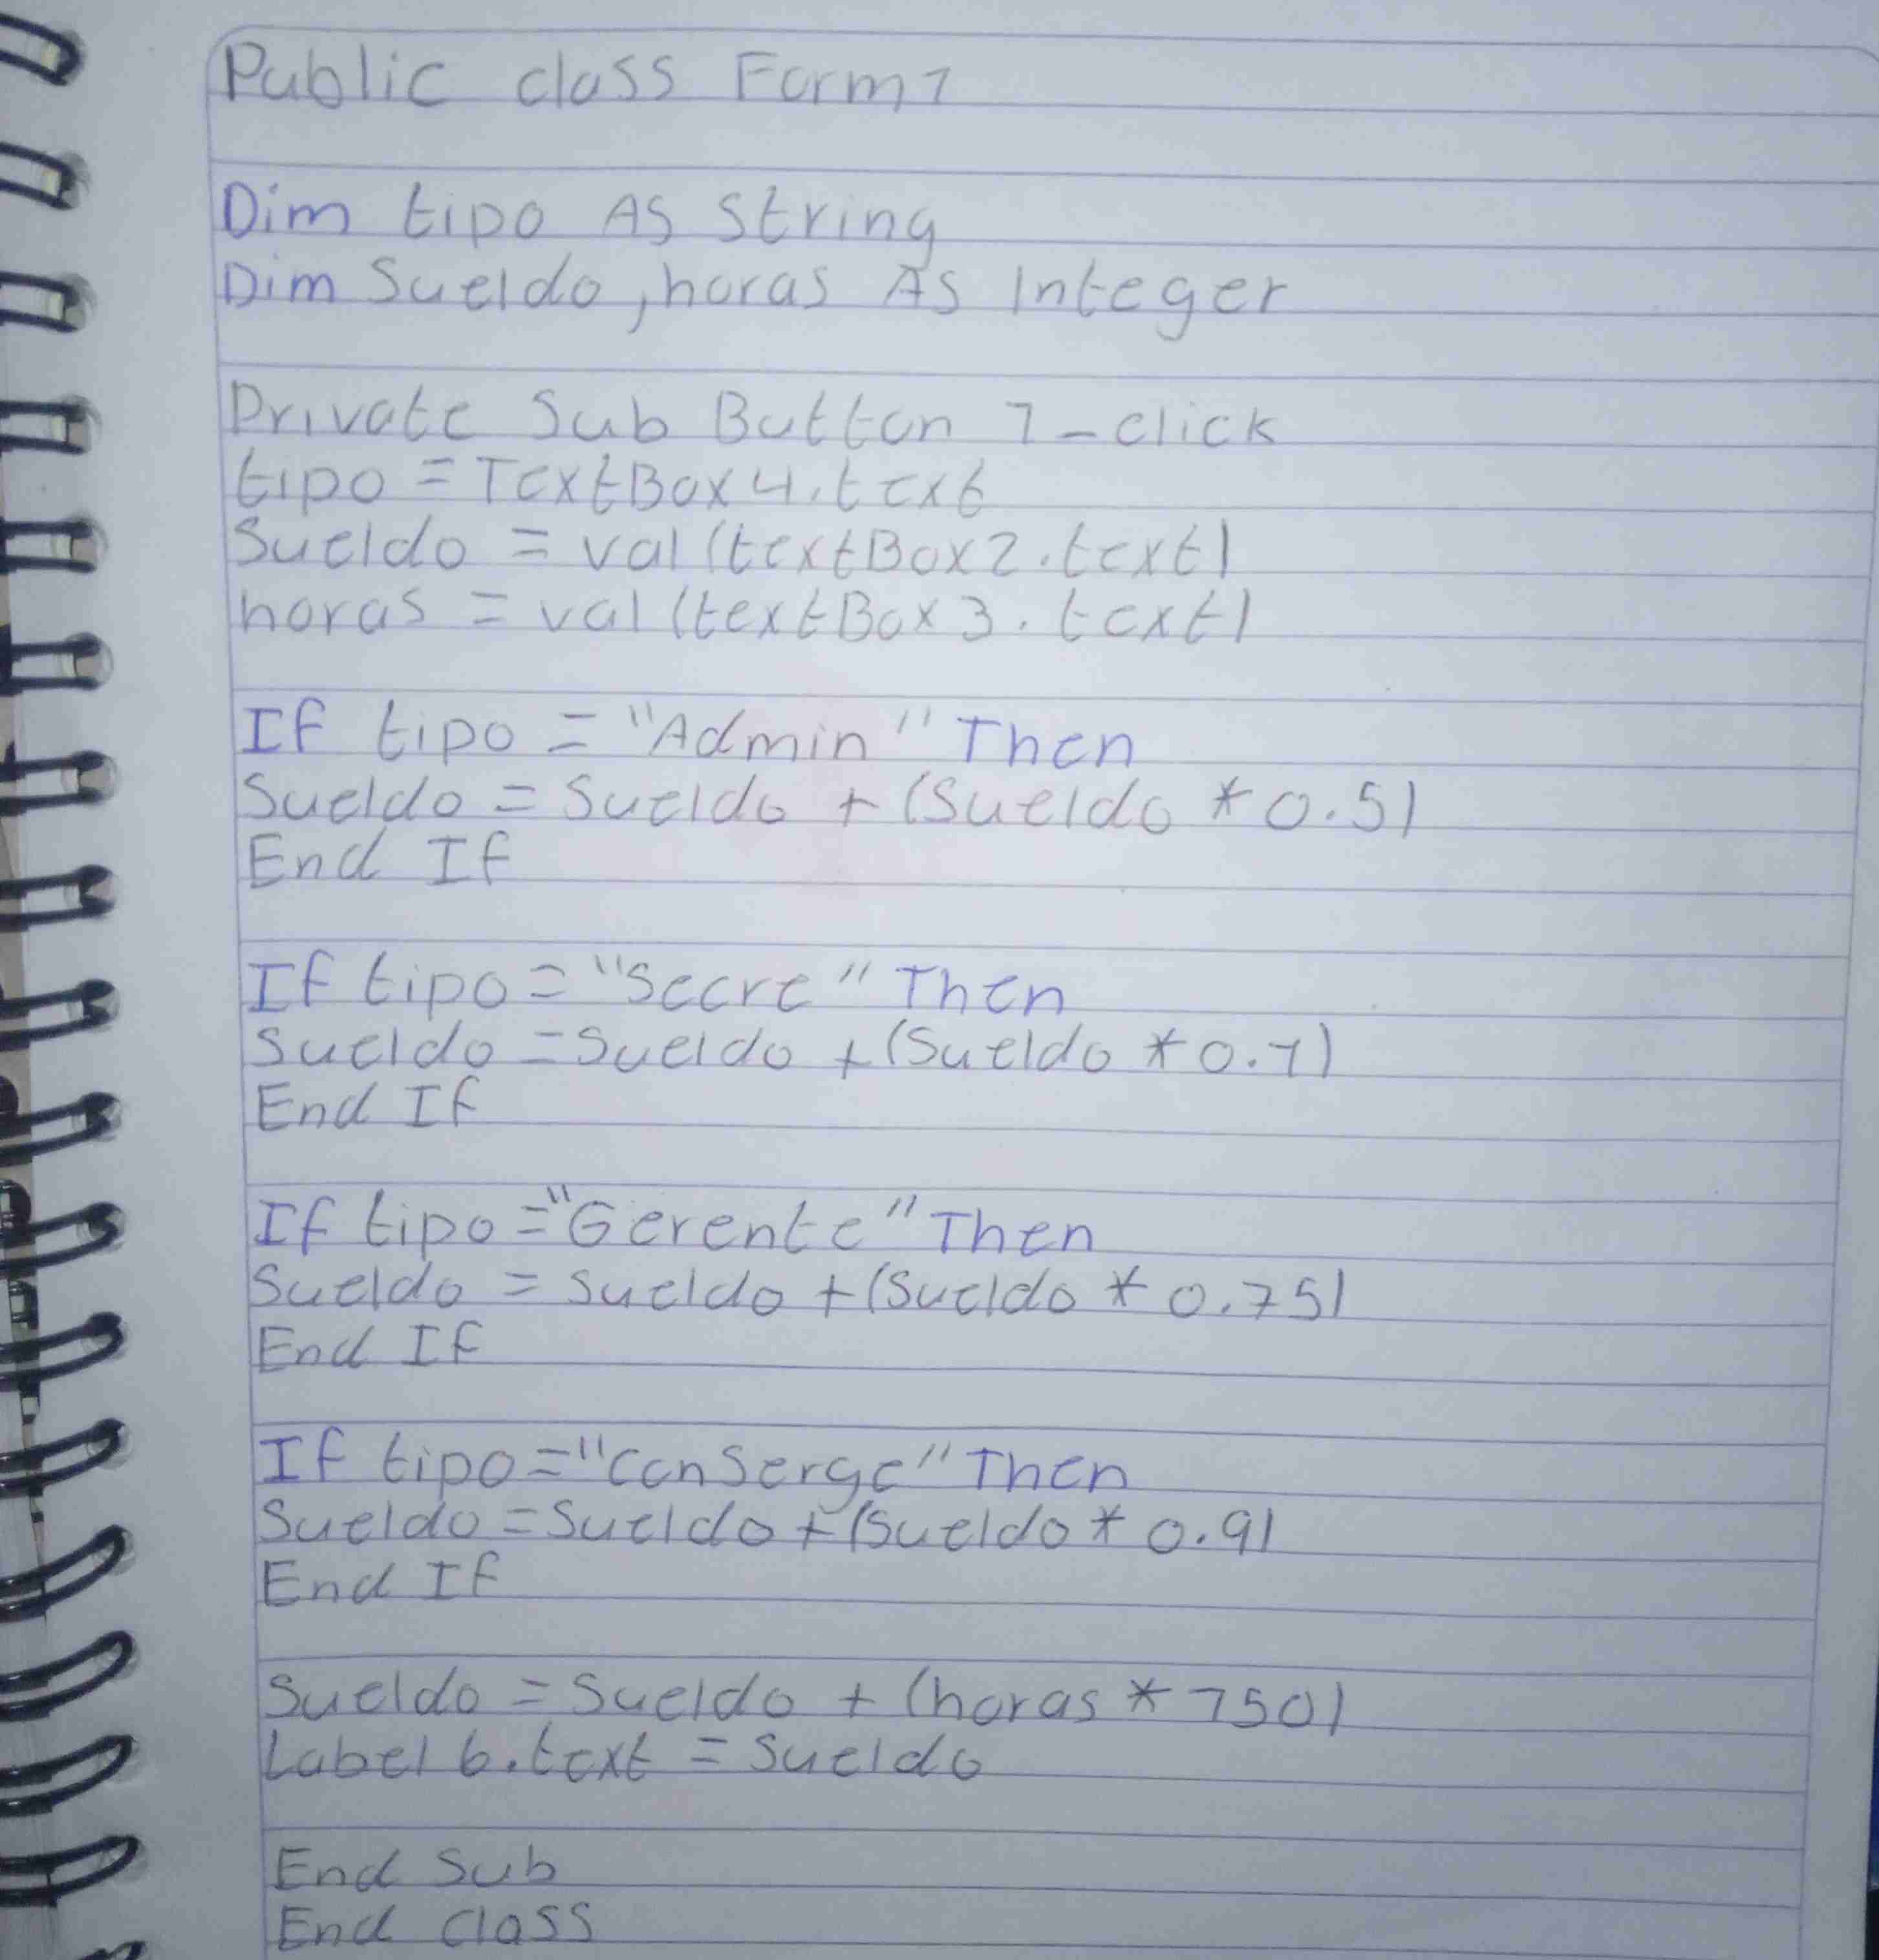 Public class Form1
Dim tipo As String
Dim Sueldo, horas As Integer
Private Sub Button 1_click
tipo = TextBox4.text
Sueldo = val(textBox2.text)
horas = val(textBox3.text)
If tipo = "Admin" Then
Sueldo = Sueldo + (Sueldo * 0.5)
End If
If tipo = "Secre" Then
Sueldo = Sueldo + (Sueldo * 0.1)
End If
If tipo = "Gerente" Then
Sueldo = Sueldo + (Sueldo * 0.75)
End If
If tipo = "Conserge" Then
Sueldo = Sueldo + (Sueldo * 0.9)
End If
Sueldo = Sueldo + (horas * 150)
Label6.text = Sueldo
End Sub
End Class